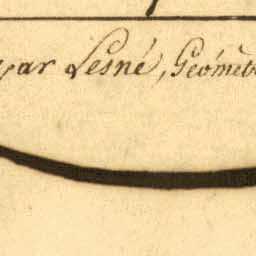 par Lesné, Géomèt